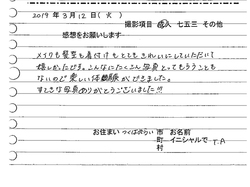 2019年3月12日(火)
撮影項目 成人 七五三 その他
感想をお願いします
メイクも髪型も着付けもとてもきれいにしていただいて
嬉しかったです。こんなにたくさん写真とってもらうことも
ないので楽しい体験ができました。
すてきな写真ありがとうございました!!!
お住まい つくばみらい 市・町・村 お名前 イニシャルで T.A